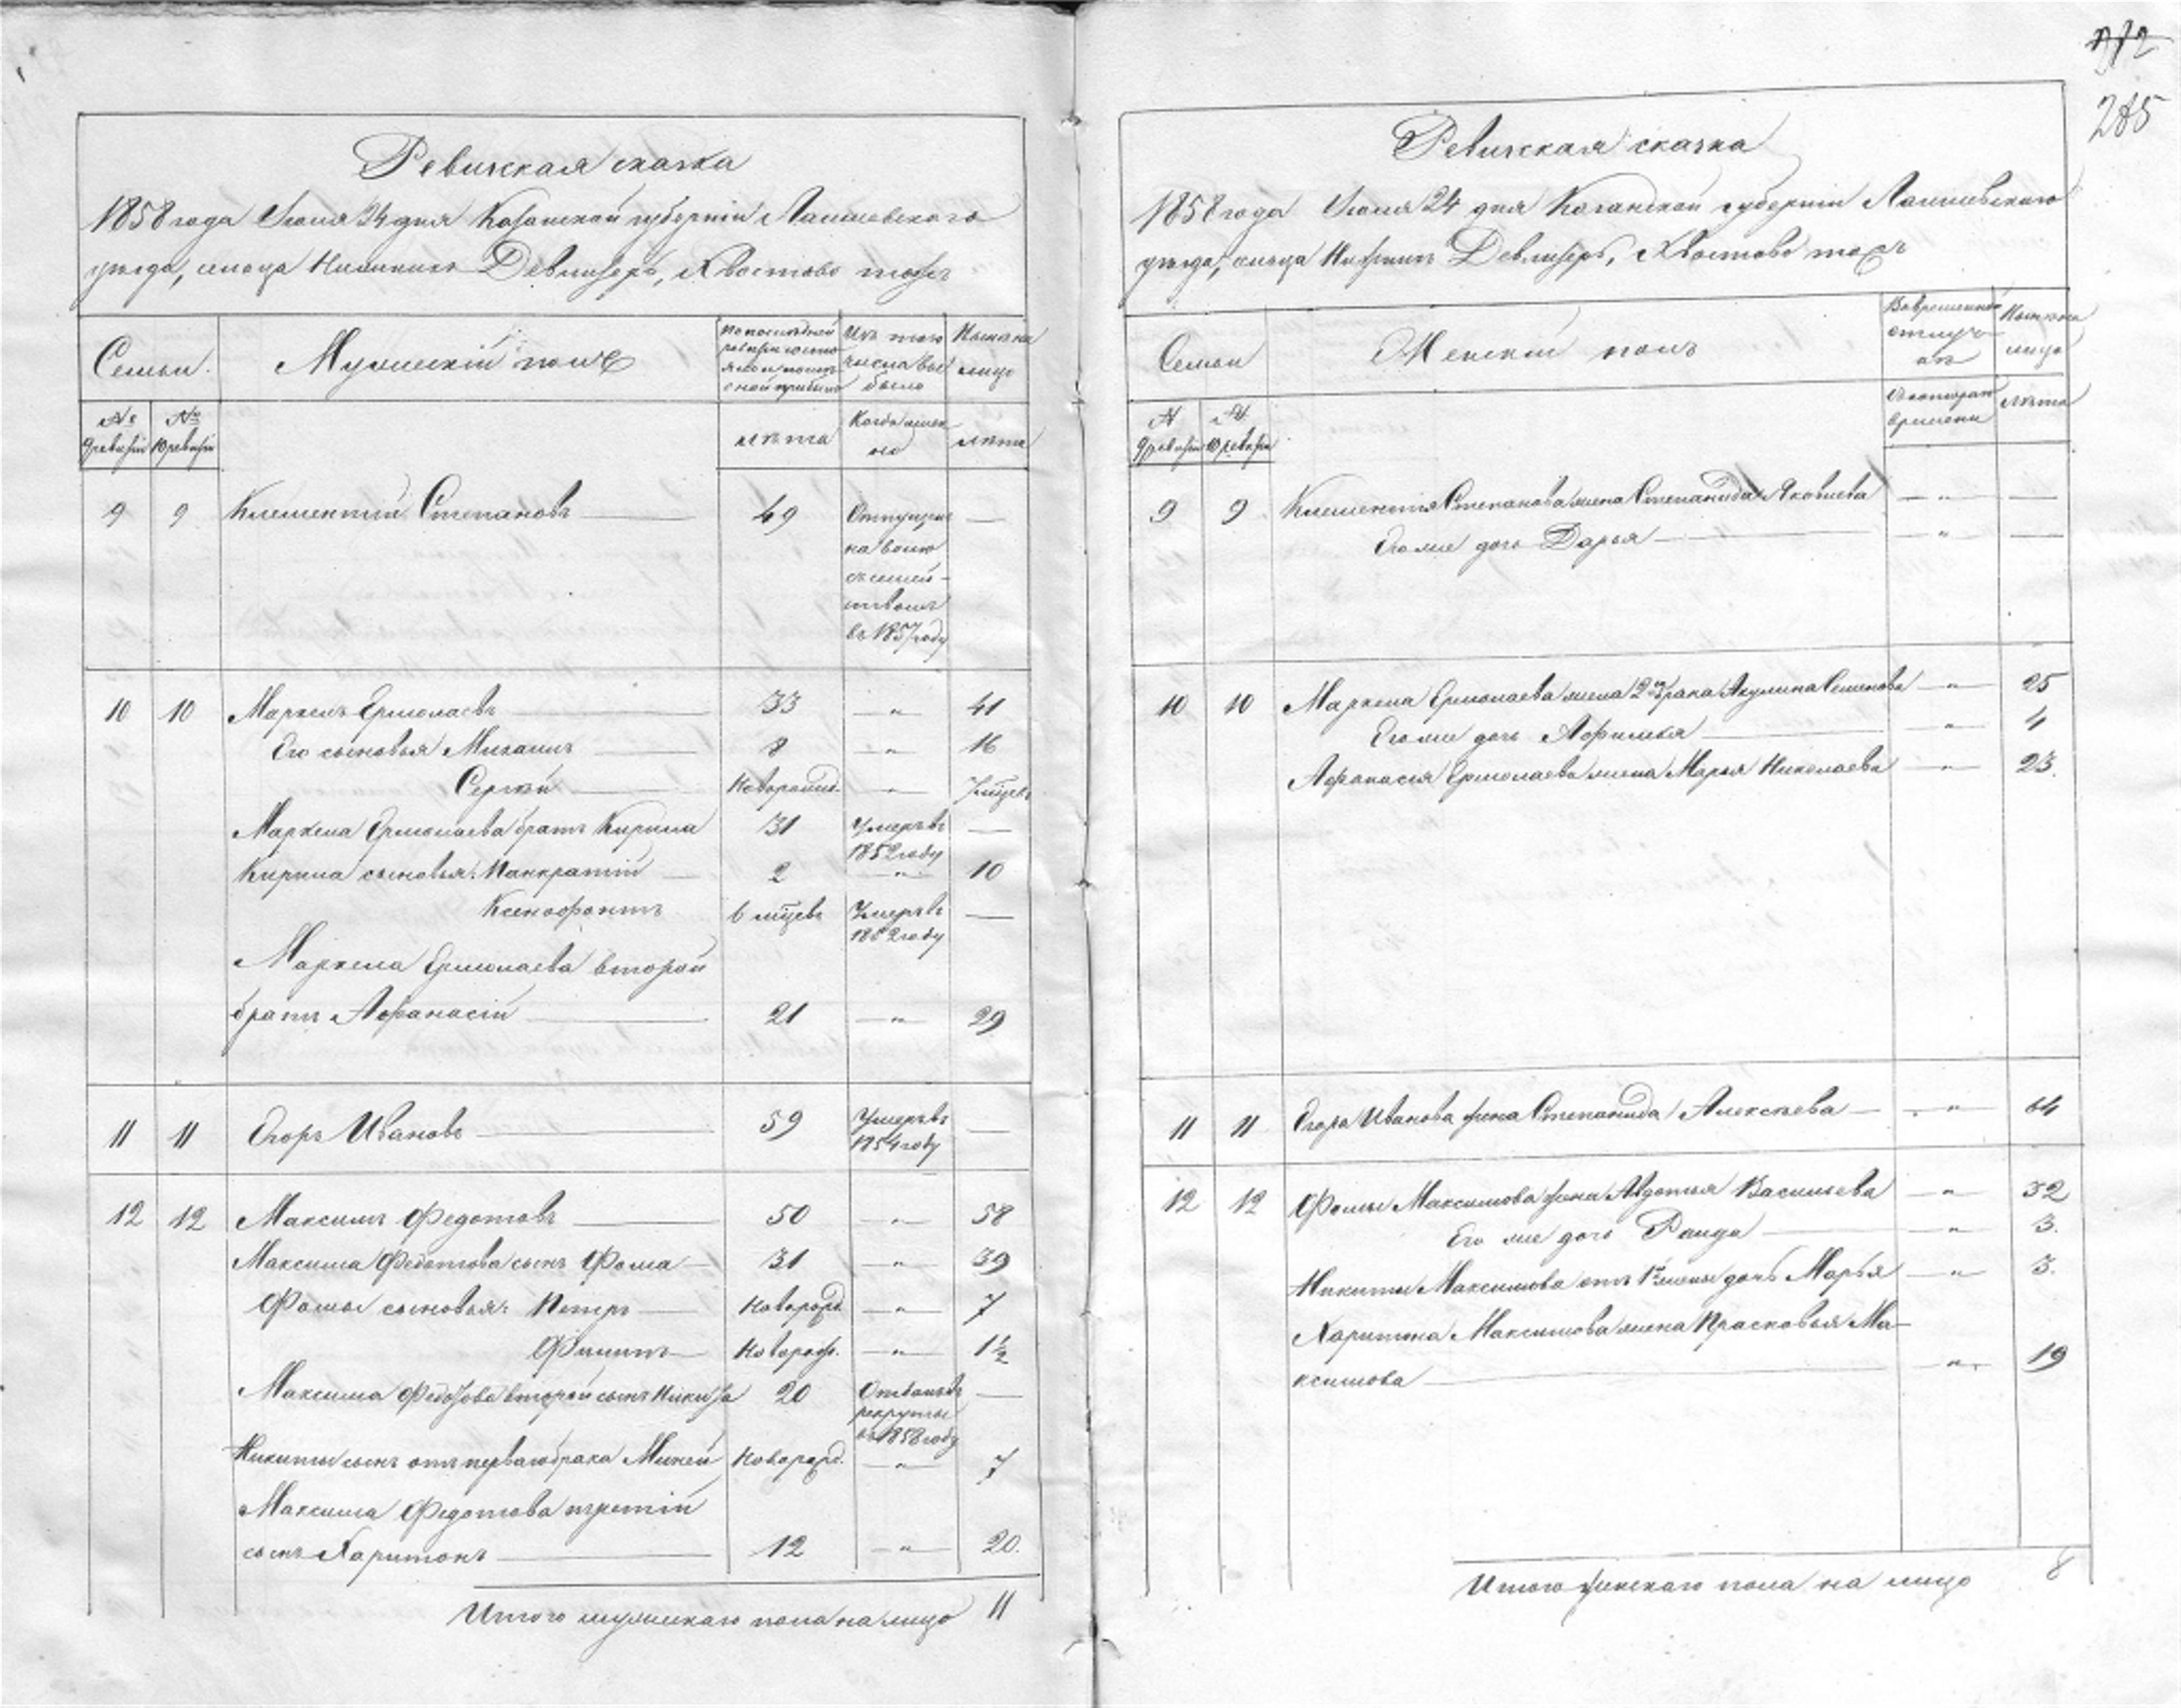 Ревизская сказка
1858 года Июня 24 дня Казанской губерніи Лаишевскаго
уѣзда, сельца Нижнихъ Девлизеръ, Хвостово тожъ
Семьи. Мужескій полъ По послѣдней ревизіи состояло и послѣ оной прибыло Изъ того числа выбыло Нынѣ на лицо
№ 9 ревизіи № 10 ревизіи лѣта Когда именно лѣта
9 9 Клементий Степановъ 49 Отпущенъ —
на волю
съ семей-
ствомъ
въ 1857 году
10 10 Маркелъ Ермолаевъ 33 „ 41
Его сыновья Михаилъ 8 „ 16
Сергѣй Новорожд. „ 7 мѣсцевъ
Маркела Ермолаева братъ Кирила 31 Умеръ въ —
1852 году
Кирила сыновья: Панкратій 2 „ 10
Ксенофонтъ 6 мѣсцевъ Умеръ въ —
1852 году
Маркела Ермолаева второй
братъ Афанасій 21 „ 29
11 11 Егоръ Ивановъ 59 Умеръ въ —
1854 году
12 12 Максимъ Федотовъ 50 „ 58
Максима Федотова сынъ Фома 31 „ 39
Фомы сыновья: Петръ Новорожд. „ 7
Филипъ Новорож. „ 1½
Максима Федотова второй сынъ Никита 20 Отданъ въ —
рекруты
въ 1858 году
Никиты сынъ отъ перваго брака Михей Новорожд. „ 7
Максима Федотова третій
сынъ Харитонъ 12 „ 20.
Итого мужескаго пола на лицо 11
285
Ревизская сказка
1858 года Июня 24 дня Казанской губерніи Лаишевскаго
уѣзда, сельца Нижнихъ Девлизеръ, Хвостово тожъ
Семьи Женскій полъ Во временной отлучкѣ Нынѣ на лицо
№ 9 ревизіи № 10 ревизіи Съ котораго времени лѣта
9 9 Клементія Степанова жена Степанида Яковлева „ —
Его же дочь Дарья „ —
10 10 Маркела Ермолаева жена 2го брака Акулина Семенова „ 25
Его же дочь Афимья „ 4
Афанасія Ермолаева жена Марья Николаева „ 23.
11 11 Егора Иванова жена Степанида Алексѣева „ 64
12 12 Фомы Максимова жена Авдотья Васильева „ 32
Его же дочь Раида „ 3.
Никиты Максимова отъ 1й жены дочь Марья „ 3.
Харитона Максимова жена Прасковья Ма-
ксимова „ 19
Итого женскаго пола на лицо 8